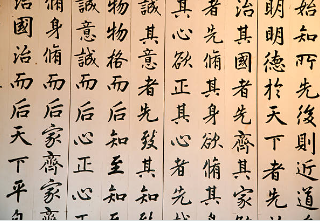 始知所先後則近道
明明德於天下者先
治其國者先齊其家
者先脩其身欲脩其
其心欲正其心者先
誠其意者先致其知
物物格而后知至知
意誠而后心正心正
身脩而后家齊家齊
治國治而后天下平自